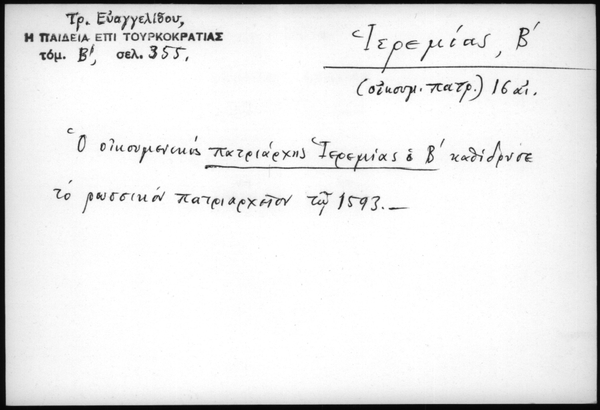 Τρ. Εὐαγγελίδου,
Η ΠΑΙΔΕΙΑ ΕΠΙ ΤΟΥΡΚΟΚΡΑΤΙΑΣ
τόμ. Β', σελ. 355.
Ἱερεμίας, Β'
(οἰκουμ. πατρ.) 16 αἰ.
Ὁ οἰκουμενικὸς πατριάρχης Ἱερεμίας ὁ Β' καθίδρυσε
τὸ ρωσσικὸν πατριαρχεῖον τῷ 1593.—